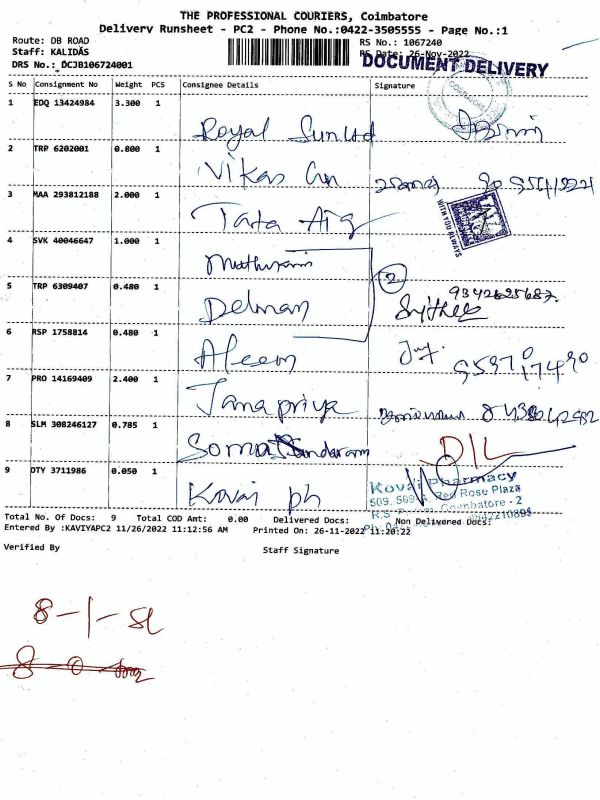 THE PROFESSIONAL COURIERS, Coimbatore
Delivery Runsheet - PC2 - Phone No.:0422-3505555 - Page No.:1
Route: DB ROAD
RS No.: 1067240
Staff: KALIDAS
RS Date: 26-Nov-2022
DRS No.: DCJB106724001
DOCUMENT DELIVERY
S No Consignment No Weight PCS Consignee Details Signature
1 EDQ 13424984 3.300 1
Royal Sun Ltd
2 TRP 6202001 0.800 1
Vikas
3 MAA 293812188 2.000 1
Tata Aig
WITH YOU ALWAYS
4 SVK 40046647 1.000 1
Muthurani
2
5 TRP 6309407 0.480 1
Delman
9342625687
6 RSP 1758814 0.480 1
Aleem
7 PRO 14169409 2.400 1
Janapriya
8 SLM 308246127 0.785 1
Soma Sundaram
DIL
9 DTY 3711986 0.050 1
Kovai ph
Kovai Pharmacy
Red Rose Plaza
Coimbatore - 2
Total No. Of Docs: 9 Total COD Amt: 0.00 Delivered Docs: Non Delivered Docs:
Entered By :KAVIYAPC2 11/26/2022 11:12:56 AM Printed On: 26-11-2022 11:20:22
Verified By Staff Signature
8-1-SL
8-0